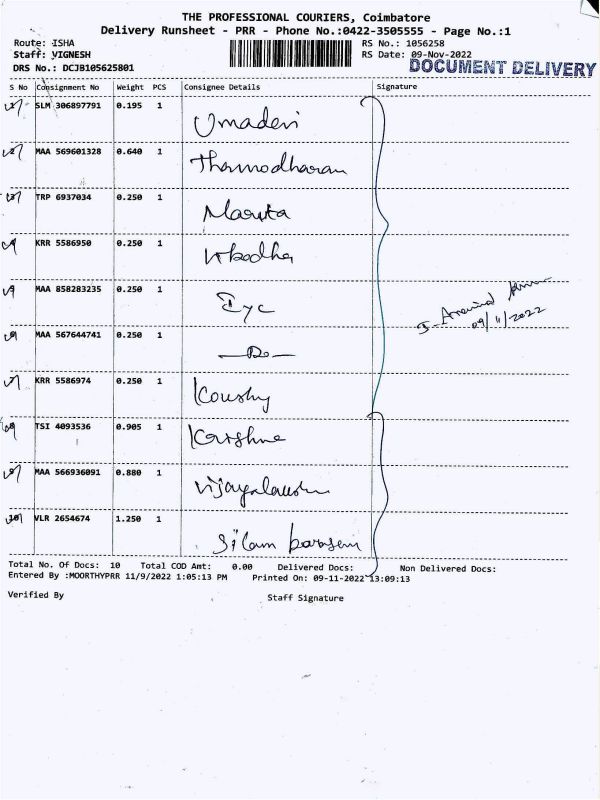 THE PROFESSIONAL COURIERS, Coimbatore
Delivery Runsheet - PRR - Phone No.:0422-3505555 - Page No.:1
Route: ISHA
Staff: VIGNESH
DRS No.: DCJB105625801
RS No.: 1056258
RS Date: 09-Nov-2022
DOCUMENT DELIVERY
S No Consignment No Weight PCS Consignee Details Signature
1 SLM 306897791 0.195 1 Umadevi
2 MAA 569601328 0.640 1 Thamodharan
3 TRP 6937034 0.250 1
4 KRR 5586950 0.250 1
5 MAA 858283235 0.250 1
6 MAA 567644741 0.250 1 -Do-
7 KRR 5586974 0.250 1
8 TSI 4093536 0.905 1
9 MAA 566936091 0.880 1
10 VLR 2654674 1.250 1
09/11/2022
Total No. Of Docs: 10 Total COD Amt: 0.00 Delivered Docs: Non Delivered Docs:
Entered By :MOORTHYPRR 11/9/2022 1:05:13 PM Printed On: 09-11-2022 13:09:13
Verified By Staff Signature